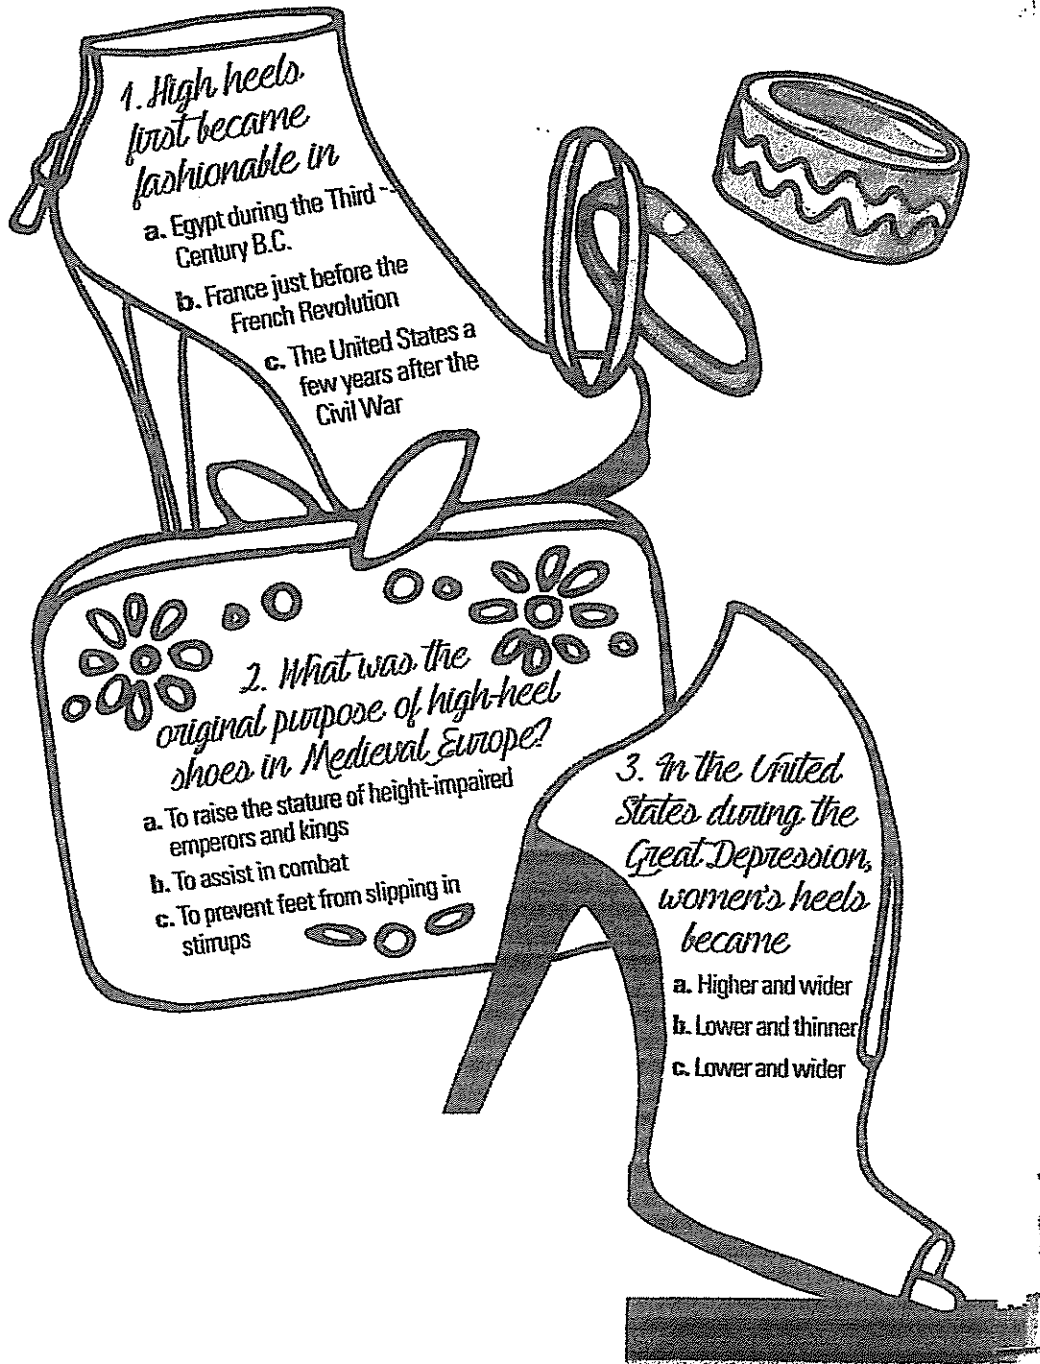 1. High heels
first became
fashionable in
a. Egypt during the Third
Century B.C.
b. France just before the
French Revolution
c. The United States a
few years after the
Civil War
2. What was the
original purpose of high-heel
shoes in Medieval Europe?
a. To raise the stature of height-impaired
emperors and kings
b. To assist in combat
c. To prevent feet from slipping in
stirrups
3. In the United
States during the
Great Depression,
women's heels
became
a. Higher and wider
b. Lower and thinner
c. Lower and wider